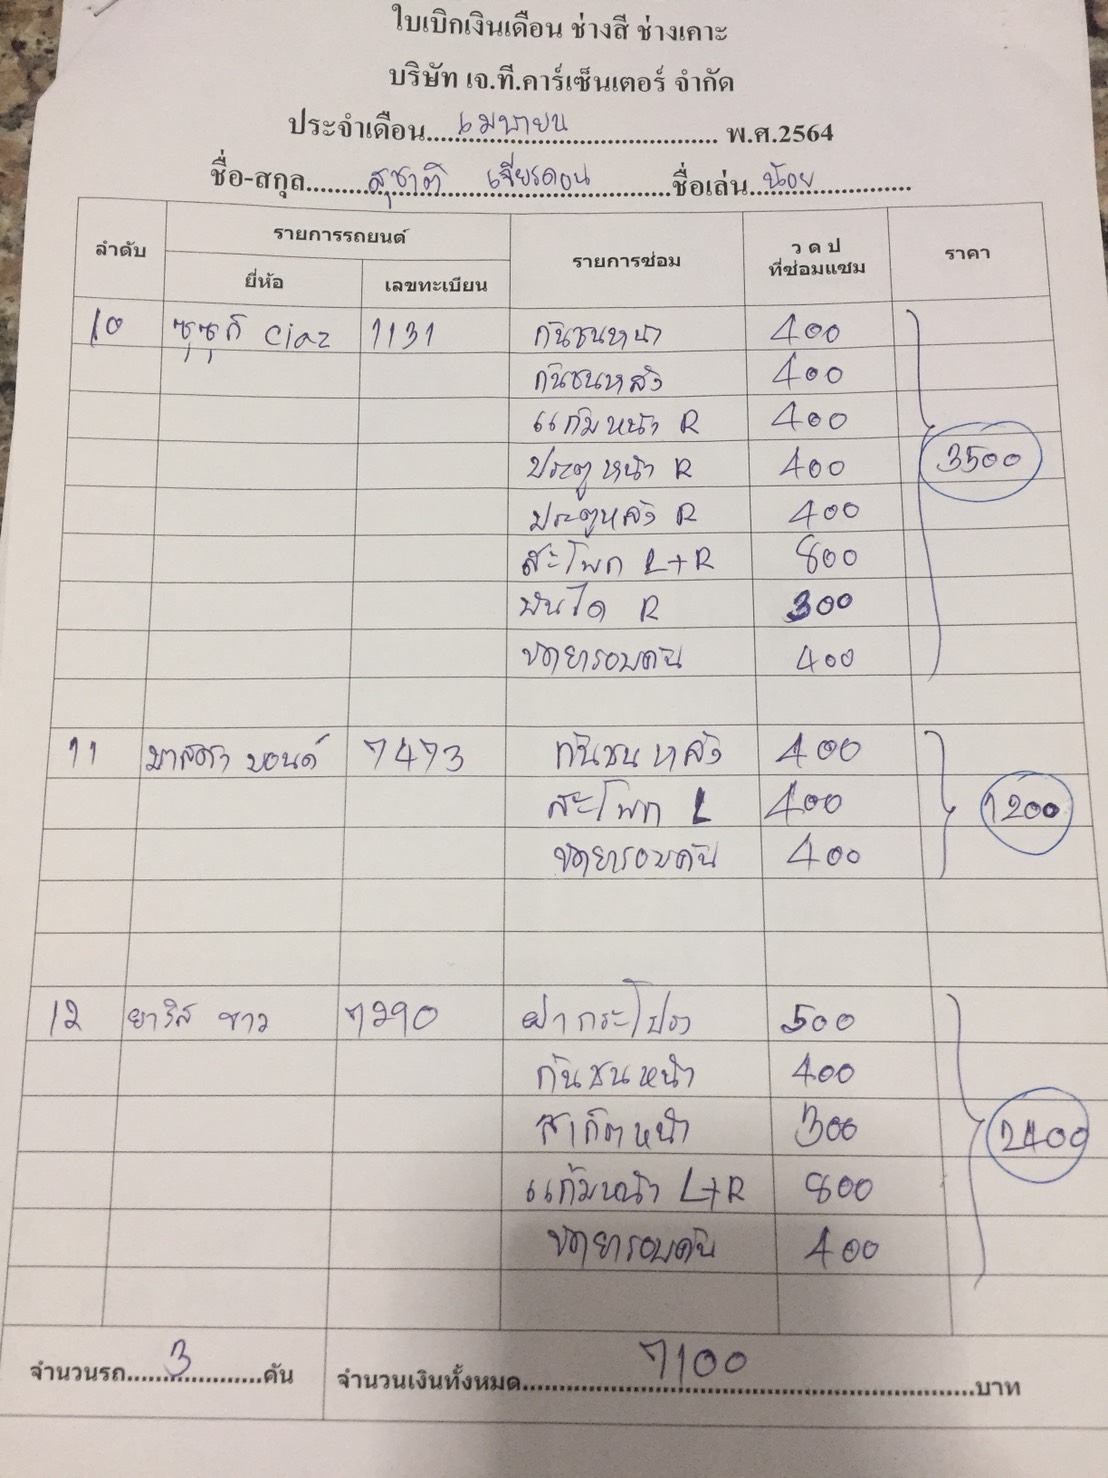 ใบเบิกเงินเดือน ช่างสี ช่างเคาะ
บริษัท เจ.ที.คาร์เซ็นเตอร์ จำกัด
ประจำเดือน....เมษายน.... พ.ศ.2564
ชื่อ-สกุล....สุชาติ เจียรดอน....ชื่อเล่น..น้อย....
ลำดับ รายการรถยนต์ รายการซ่อม ว ด ป ที่ซ่อมแซม ราคา
ยี่ห้อ เลขทะเบียน
10 ซุซุกิ Ciaz 1131 กันชนหน้า 400
กันชนหลัง 400
แก้มหน้า R 400
ประตูหน้า R 400 3500
ประตูหลัง R 400
สะโพก L+R 800
บันได R 300
ขัดยารอบคัน 400
11 มาสด้า บอนด์ 7473 กันชนหลัง 400
สะโพก L 400 1200
ขัดยารอบคัน 400
12 ยาริส ขาว 7290 ฝากระโปรง 500
กันชนหน้า 400
สเกิตหน้า 300 2400
แก้มหน้า L+R 800
ขัดยารอบคัน 400
จำนวนรถ....3....คัน จำนวนเงินทั้งหมด....7100....บาท